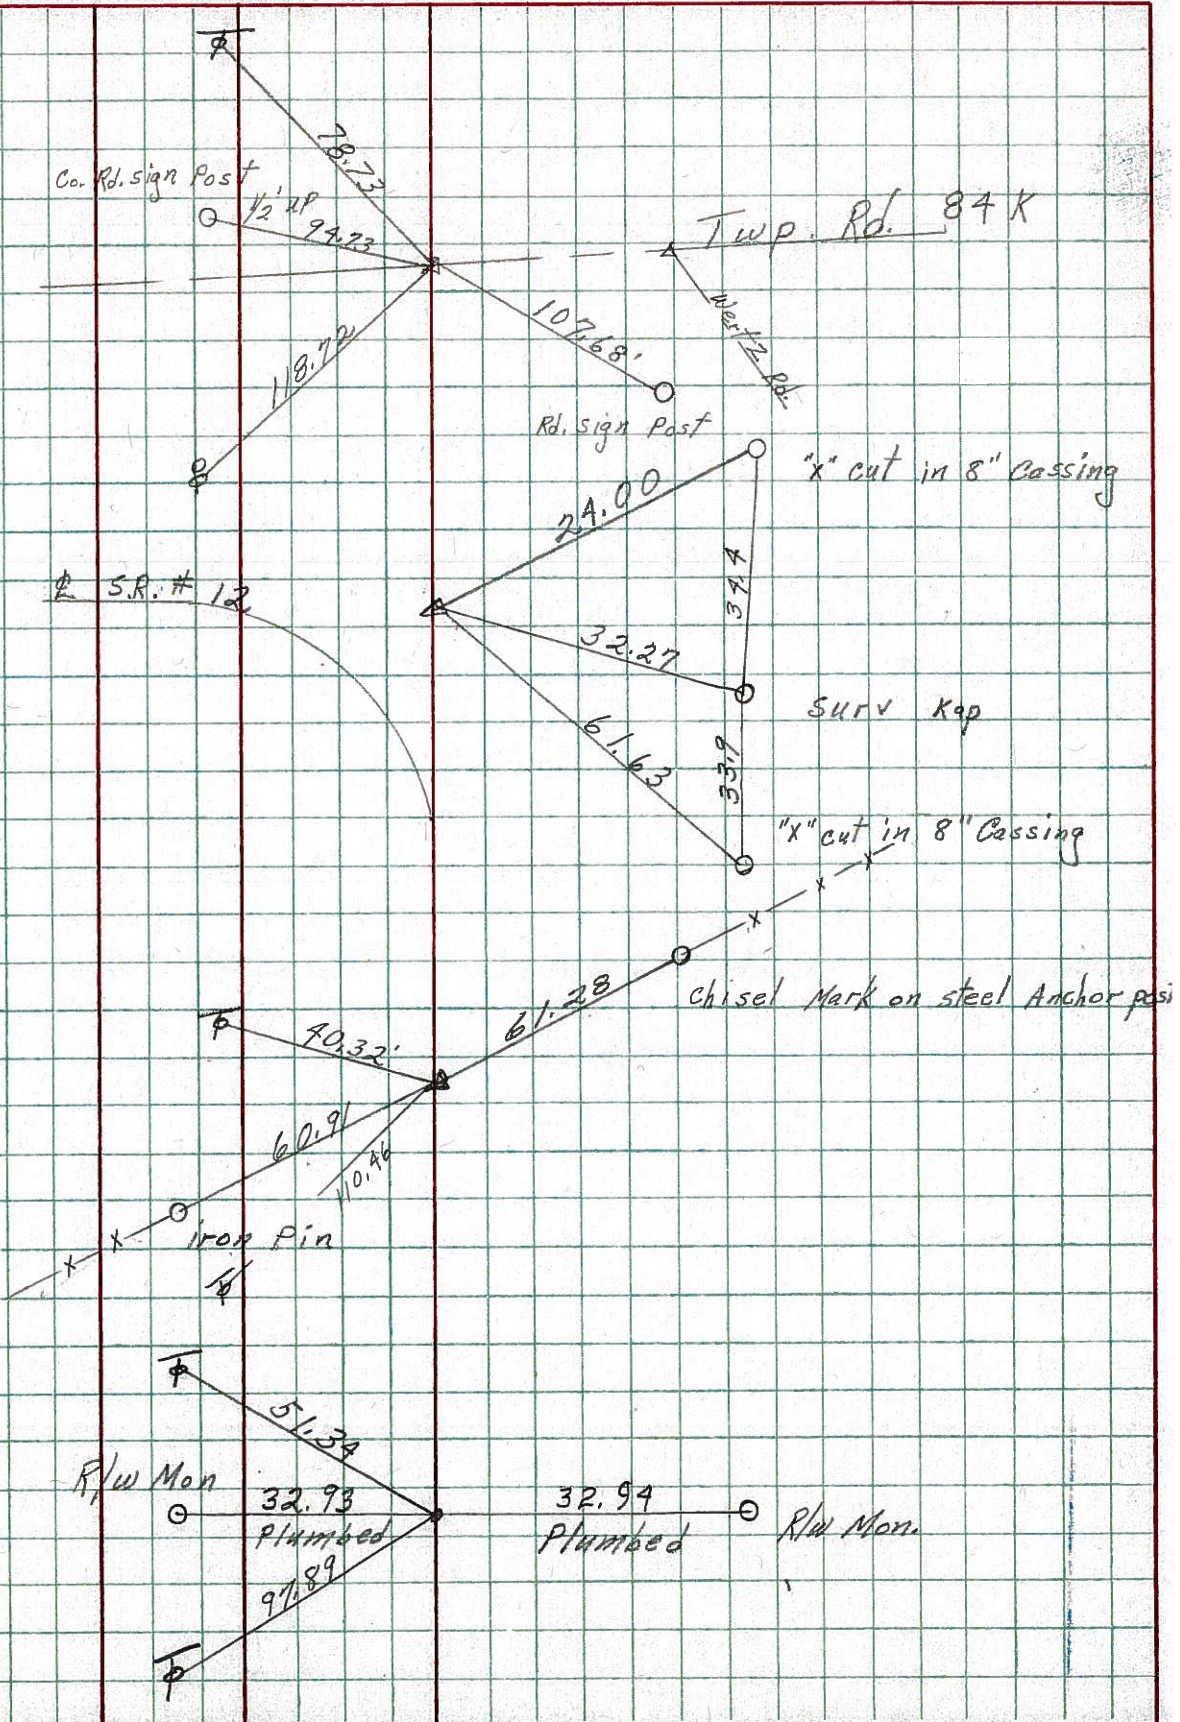 78.73
Co. Rd. sign Post
1/2' up
94.73
Twp. Rd. 84 K
107.68'
118.72
Rd. sign Post
"X" cut in 8" Cassing
24.00
34.4
℄ S.R. # 12
32.27
Surv Kap
61.63
33.9
"X" cut in 8" Cassing
61.28
Chisel Mark on steel Anchor pos
40.32'
60.91
110.46
iron Pin
51.34
R/W Mon
32.93
Plumbed
32.94
Plumbed
R/W Mon.
97.89